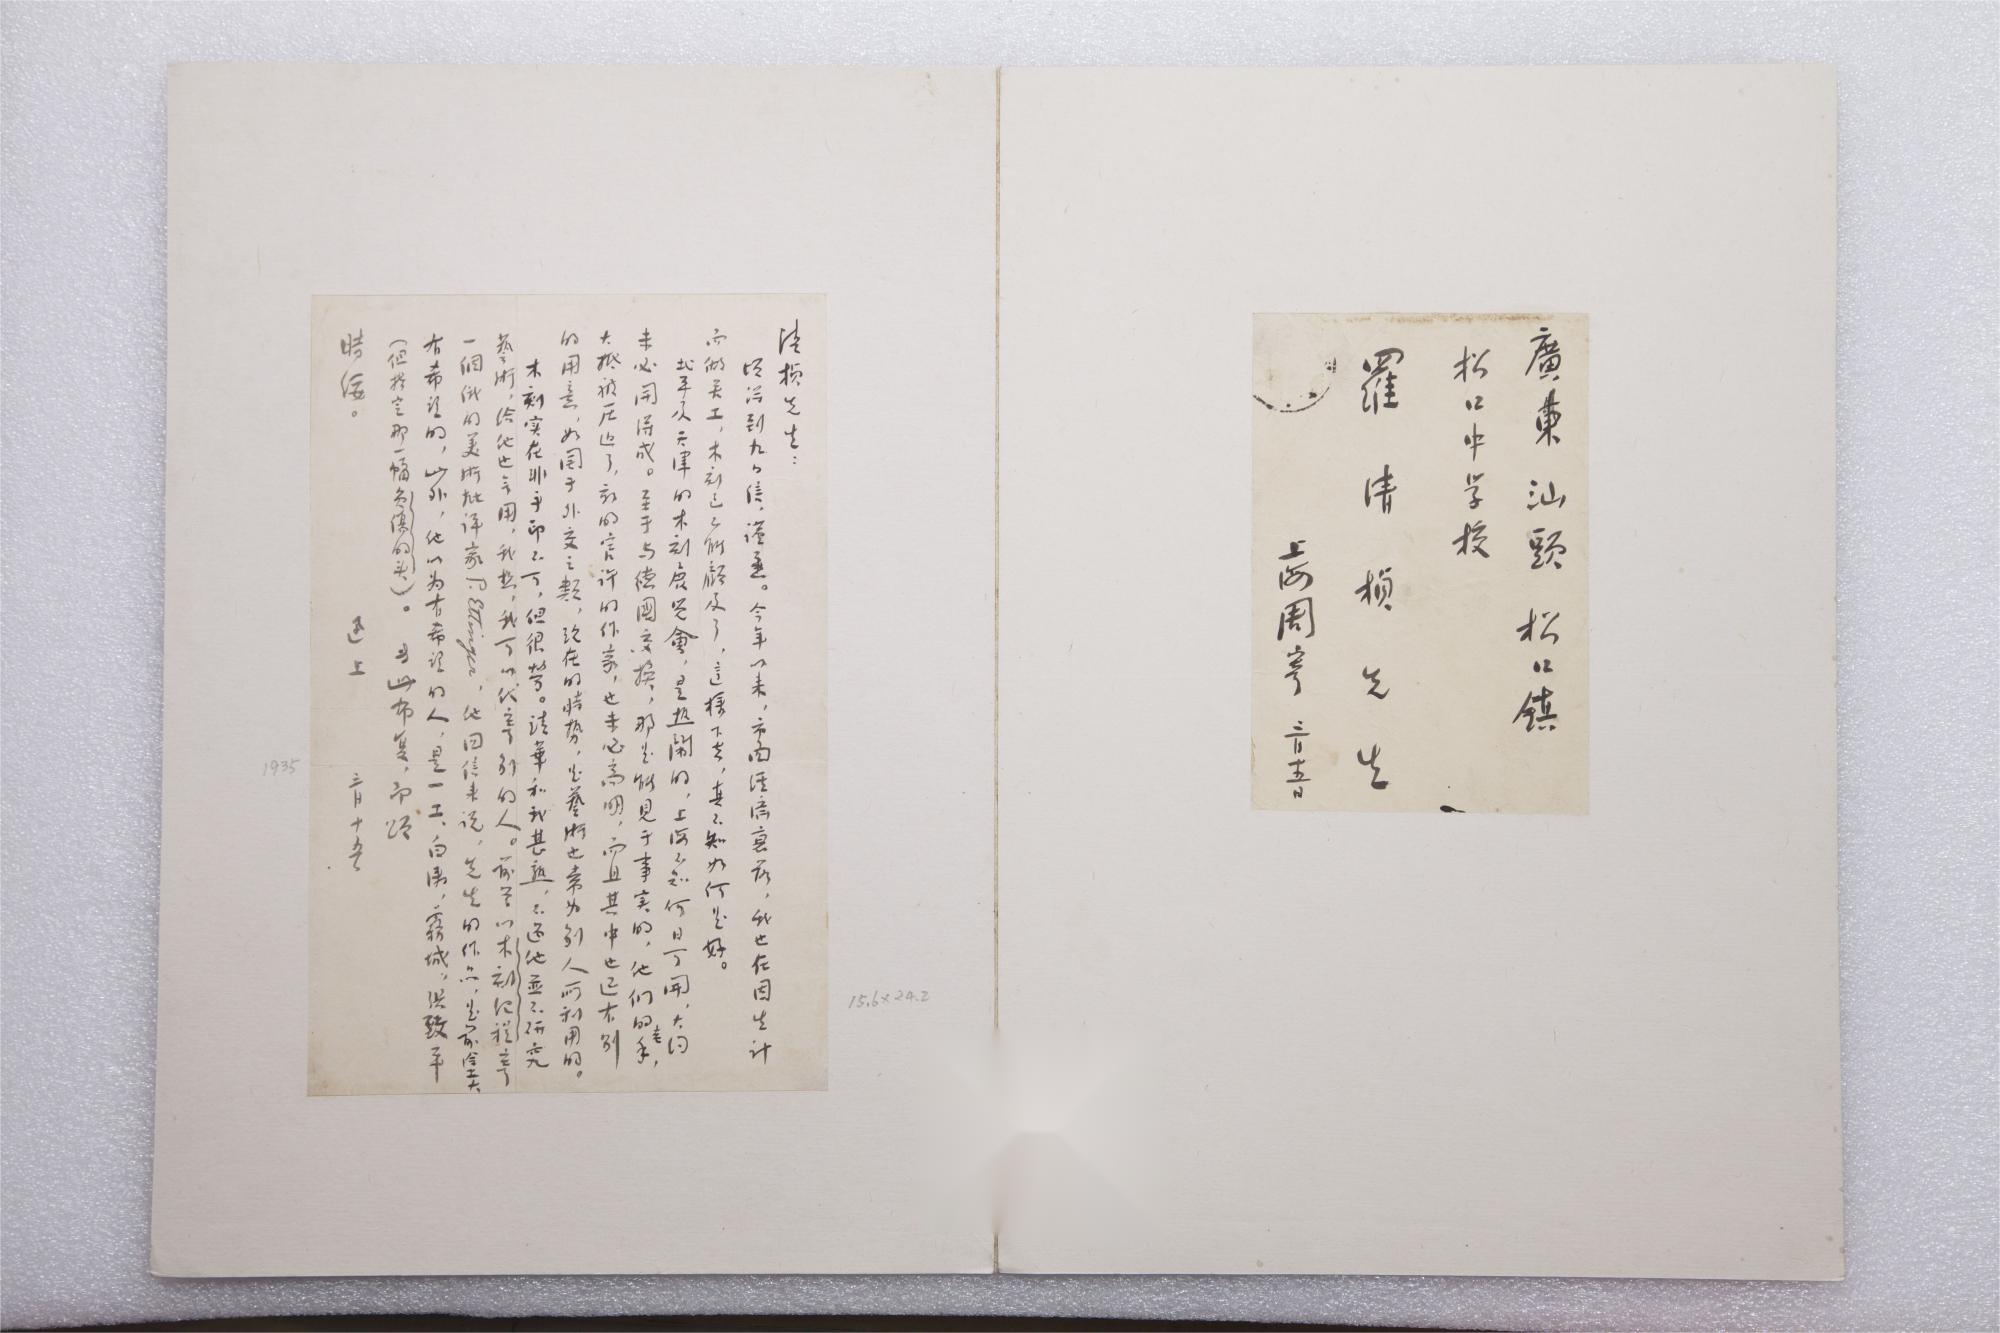 廣東汕頭松口鎮
松口中学校
羅清楨先生
上海周寄 三月十五日
清楨先生：
頃得到九日信，謹悉。今年以来，市面經濟衰落，我也在因生计
而做苦工，木刻已不能顧及了，這樣下去，真不知如何是好。
北平及天津的木刻展览會，是热鬧的，上海不知何日可開，大约
未必開得成。至于与德國交换，那是能見于事实的，他们的老手，
大抵被压迫了，新的官许的作家，也未必高明，而且其中也还有别
的用意，如関于外交之類，现在的時勢，是藝術也常为别人所利用的。
木刻实在非手印不可，但很勞。請華和我甚熟，不过他並不研究
藝術，给他也无用，我想，我可以代寄别的人。前曾以木刻纪程寄
一個俄的美術批评家P. Ettinger，他回信来说，先生的作品，是前途大
有希望的，此外，他以为有希望的人，是一工，白濤，霧城，張致平
（但指定那一幅負傷的头）。 专此布复，即颂
時绥。
迅上 三月十五日
1935
15.6×24.2